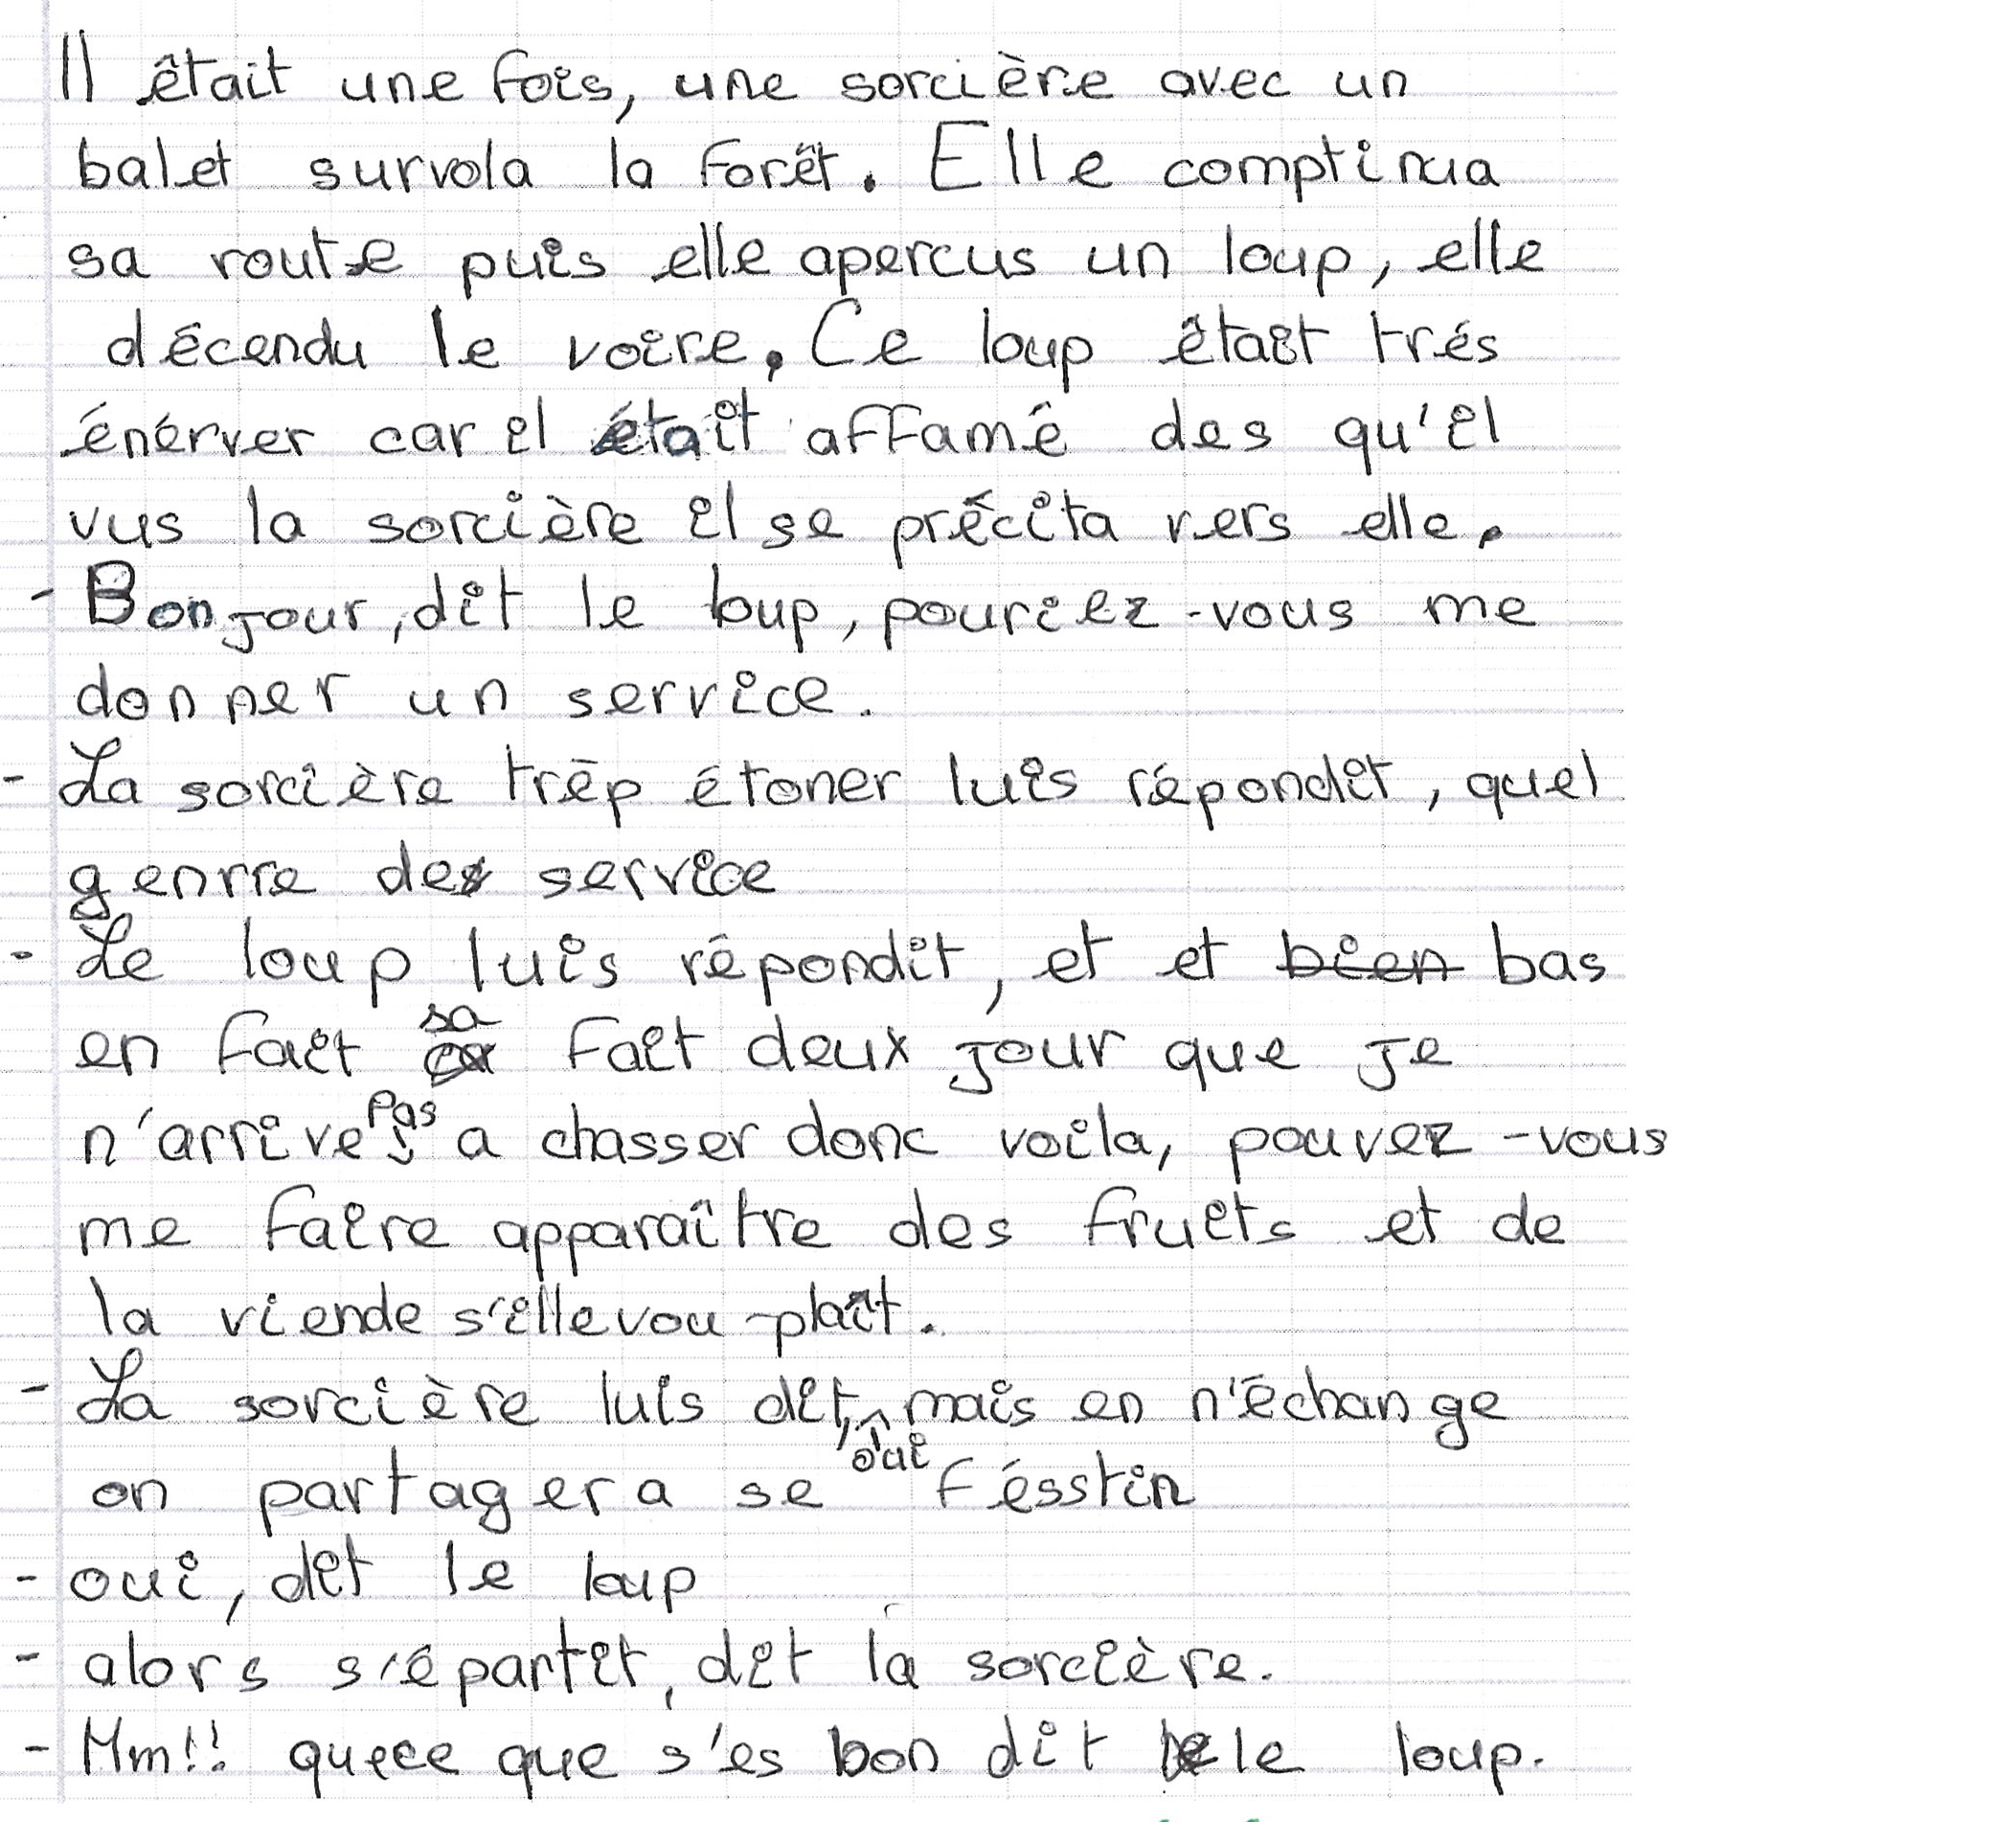 Il était une fois, une sorcière avec un
balet survola la forêt. Elle comptinua
sa route puis elle apercus un loup, elle
décendu le voire. Ce loup était trés
énérver car il était affamé des qu'il
vus la sorcière il se précita vers elle.
- Bonjour, dit le loup, pouriez-vous me
donner un service.
- La sorcière trép étoner luis répondit, quel
genrre de service
- Le loup luis répondit, et et bien bas
en fait sa fait deux jour que je
n'arrive pas a chasser donc voila, pouvez-vous
me faire apparaître des fruits et de
la viende s'ille vou-plaît.
- La sorcière luis dit, oui mais en n'échange
on partagera se fésstin
- oui, dit le loup
- alors s'épartit, dit la sorcière.
- Mm!! quece que s'es bon dit le loup.